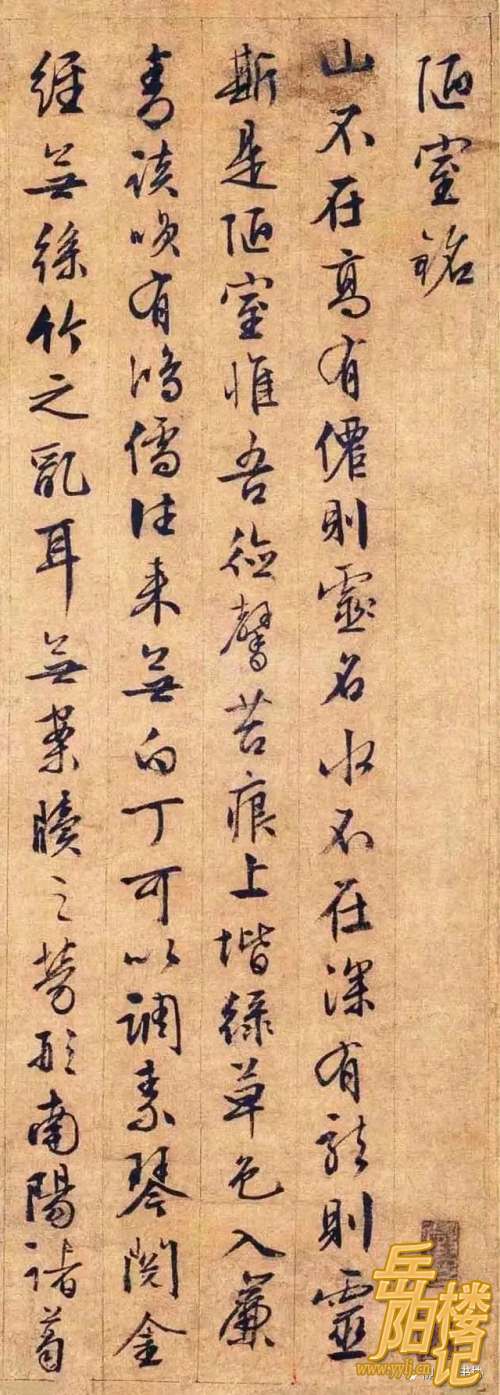 陋室銘
山不在高有僊則靈名水不在深有龍則靈
斯是陋室惟吾德馨苔痕上堦綠草色入簾
青談咲有鴻儒往来無白丁可以調素琴閱金
經無絲竹之亂耳無案牘之勞形南陽諸葛
岳阳楼记
www.yylj.cn